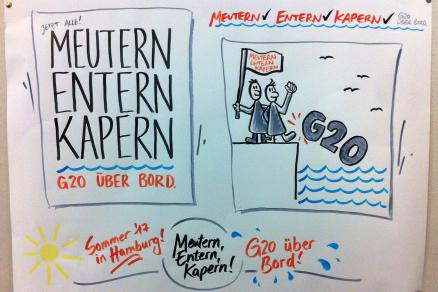 JETZT ALLE!
MEUTERN
ENTERN
KAPERN
G20 ÜBER BORD.
MEUTERN ✓ ENTERN ✓ KAPERN ✓
G20
ÜBER
BORD.
MEUTERN
ENTERN
KAPERN
G20
Sommer '17
in Hamburg!
Meutern,
Entern,
Kapern!
G20 über
Bord!